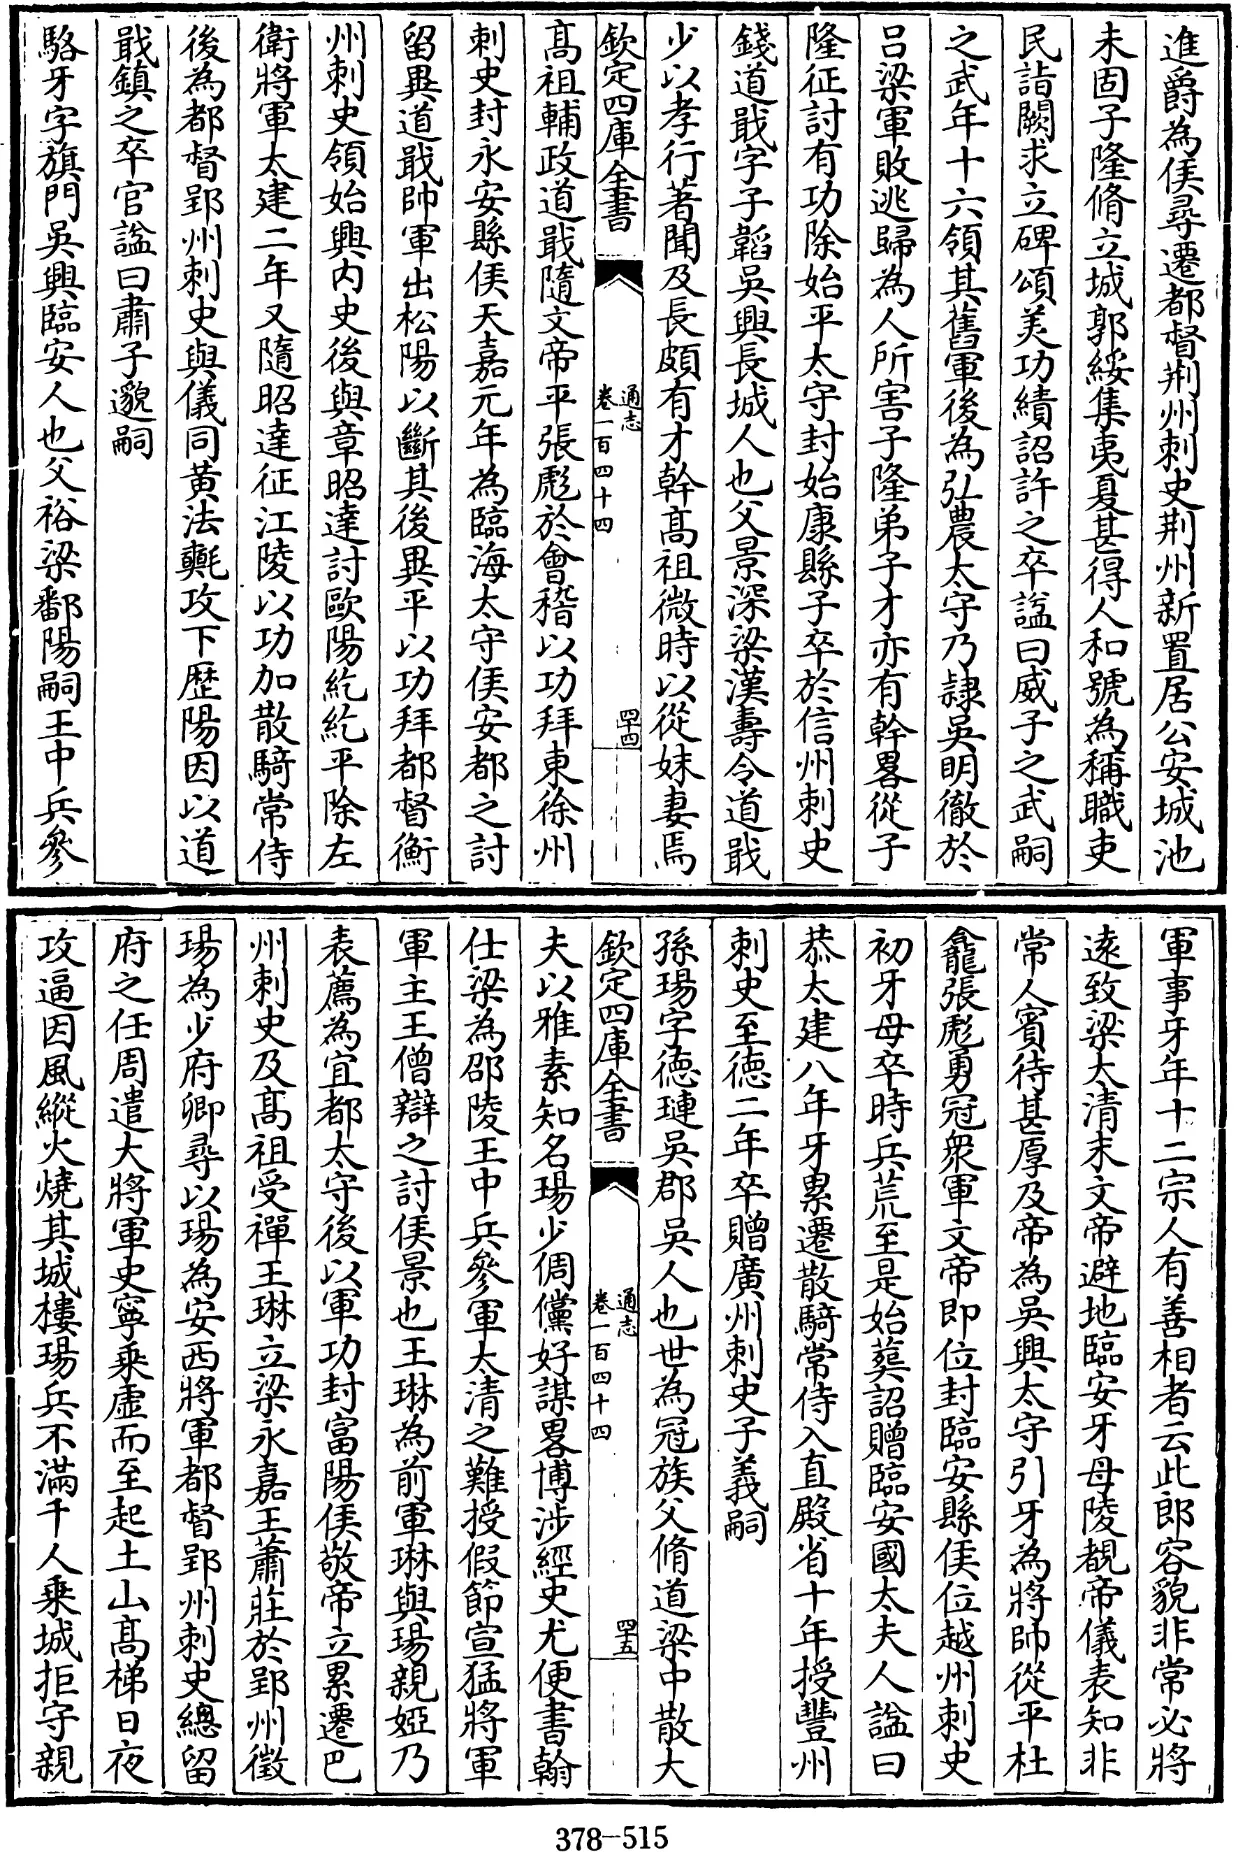 進爵為侯尋遷都督荆州刺史荆州新置居公安城池
未固子隆脩立城郭綏集夷夏甚得人和號為稱職吏
民詣闕求立碑頌美功績詔許之卒諡曰威子之武嗣
之武年十六領其舊軍後為弘農太守乃隷吳明徹於
吕梁軍敗逃歸為人所害子隆弟子才亦有幹畧從子
隆征討有功除始平太守封始康縣子卒於信州刺史
錢道戢字子韜吳興長城人也父景深梁漢壽令道戢
少以孝行著聞及長頗有才幹髙祖微時以從妹妻焉
欽定四庫全書
通志
卷一百四十四
四十四
髙祖輔政道戢隨文帝平張彪於會稽以功拜東徐州
刺史封永安縣侯天嘉元年為臨海太守侯安都之討
留異道戢帥軍出松陽以斷其後異平以功拜都督衡
州刺史領始興内史後與章昭達討歐陽紇紇平除左
衛將軍太建二年又隨昭達征江陵以功加散騎常侍
後為都督郢州刺史與儀同黄法𣰰攻下歷陽因以道
戢鎮之卒官諡曰肅子邈嗣
駱牙字旗門吳興臨安人也父裕梁鄱陽嗣王中兵參
軍事牙年十二宗人有善相者云此郎容貌非常必將
逺致梁大清末文帝避地臨安牙母陵覩帝儀表知非
常人賓待甚厚及帝為吳興太守引牙為將帥從平杜
龕張彪勇冠衆軍文帝即位封臨安縣侯位越州刺史
初牙母卒時兵荒至是始葬詔贈臨安國太夫人諡曰
恭太建八年牙累遷散騎常侍入直殿省十年授豐州
刺史至德二年卒贈廣州刺史子義嗣
孫瑒字德璉吳郡吳人也世為冠族父脩道梁中散大
欽定四庫全書
通志
卷一百四十四
四十五
夫以雅素知名瑒少倜儻好謀畧博涉經史尤便書翰
仕梁為邵陵王中兵參軍太清之難授假節宣猛將軍
軍主王僧辯之討侯景也王琳為前軍琳與瑒親婭乃
表薦為宜都太守後以軍功封富陽侯敬帝立累遷巴
州刺史及髙祖受禪王琳立梁永嘉王蕭莊於郢州徵
瑒為少府卿尋以瑒為安西將軍都督郢州刺史總留
府之任周遣大將軍史寧乘虚而至起土山髙梯日夜
攻逼因風縱火燒其城樓瑒兵不滿千人乗城拒守親
378-515